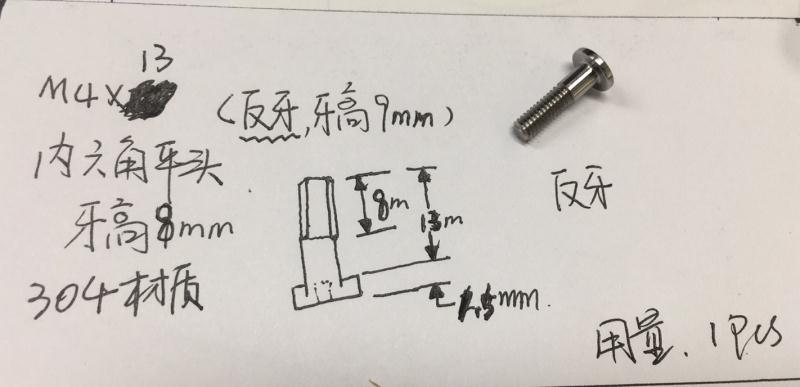 M4×13
(反牙,牙高9mm)
内六角平头
牙高8mm
304材质
8m
13m
1.5mm.
反牙
用量.1PCS